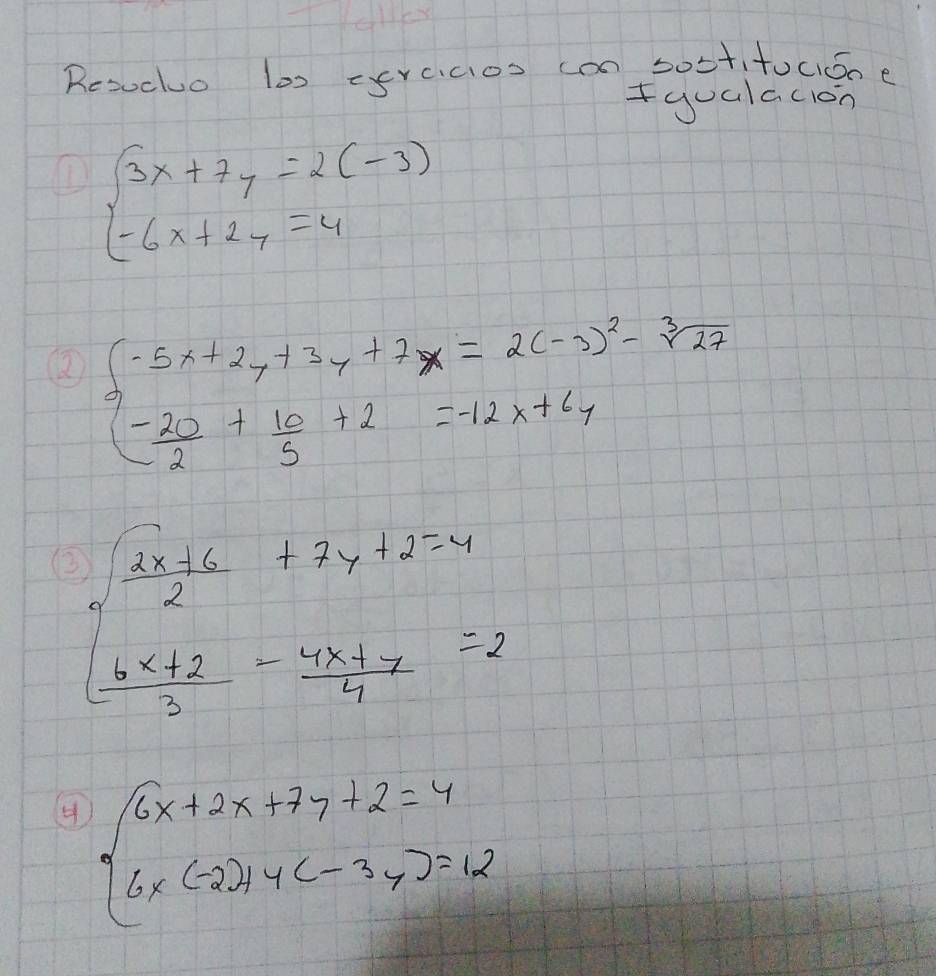 Taller
Resuelvo los ejercicios con sostitución e
Igualación
① 3x + 7y = 2(-3)
-6x + 2y = 4
② -5x + 2y + 3y + 7x = 2(-3)² - ∛27
-20/2 + 10/5 + 2 = -12x + 6y
③ (2x + 6)/2 + 7y + 2 = 4
(6x + 2)/3 - (4x + y)/4 = 2
④ 6x + 2x + 7y + 2 = 4
6x (-2) + 4 (-3y) = 12